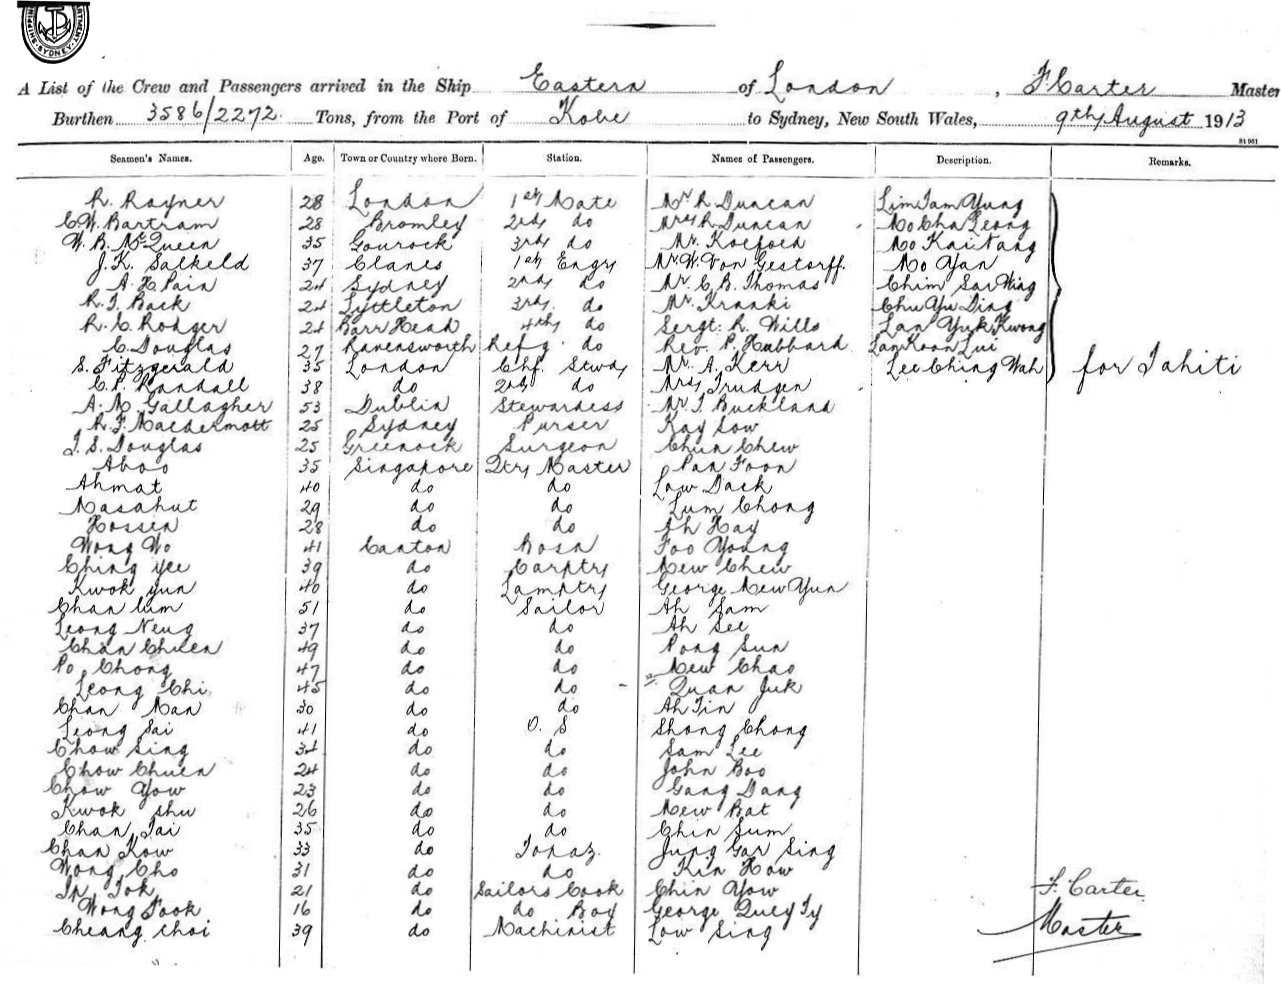 SYDNEY
A List of the Crew and Passengers arrived in the Ship Eastern of London, F Carter Master
Burthen 3586/2272 Tons, from the Port of Kobe to Sydney, New South Wales, 9th August 1913
Seamen's Names. Age. Town or Country where Born. Station. Names of Passengers. Description. Remarks.
R. Rayner 28 London 1st Mate Mr R Duncan Lim Tam Yung
C. W. Bartram 28 Bromley 2nd do Mrs R Duncan Mo Cha Leong
W. B. McQueen 35 Gourock 3rd do Mr. Koefoed Mo Kai Tang
J. K. Salkeld 37 Clanes 1st Engr Mr W. Von Gestorff. Mo Yan
A. H Pain 24 Sydney 2nd do Mr C B. Thomas Chim Sar Wing
R. J. Back 24 Lyttleton 3rd do Mr. Kranki Chu Yu Ding
R. C. Rodger 24 Barr Head 4th do Sergt: R. Wills Lan Yuk Kwong
C. Douglas 27 Ravensworth Refg. do Rev. P. Hubbard Lam Koon Lui
S. Fitzgerald 35 London Chf. Stwd Mr. A. Kerr Lee Ching Wah for Tahiti
C. P. Randall 38 do 2nd do Mrs Trudgen
A. M. Gallagher 53 Dublin Stewardess Mr. J Buckland
R. F. Macdermott 25 Sydney Purser Kay Sow
J. S. Douglas 25 Greenock Surgeon Chun Chew
Aboo 35 Singapore Qtr Master Pan Foon
Ahmat 40 do do Low Dack
Masahut 29 do do Lum Chong
Hossen 28 do do Ah Hay
Wong Wo 41 Canton Bosn Foo Young
Ching Yee 39 do Carptr Mew Chew
Kwok Yun 40 do Lamptr George Mew Yun
Chan Lum 51 do Sailor Ah Sam
Leong Neug 37 do do Ah See
Chan Chuen 49 do do Pong Sun
Po Chong 47 do do Mew Chao
Leong Chi 45 do do Quan Juk
Chan Man 30 do do Ah Tin
Leong Sai 41 do O. S Shong Chong
Chow Sing 34 do do Sam Lee
Chow Chuen 24 do do John Boo
Chow Yow 23 do do Gang Dang
Kwok Shu 26 do do Mew Bat
Chan Tai 35 do do Chin Sum
Chan Kow 33 do Topaz Jung Gar Sing
Wong Cho 31 do do Kin How
Ip Tok 21 do Sailors Cook Chin Yow F. Carter
Wong Fook 16 do do Boy George Quey Ty Master
Cheang Choi 39 do Machinist Low Sing